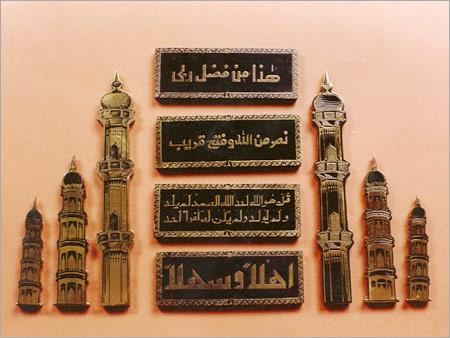 هذا من فضل ربي
نصر من الله وفتح قريب
قل هو الله احد الله الصمد لم يلد
ولم يولد ولم يكن له كفوا احد
اهلاً وسهلاً